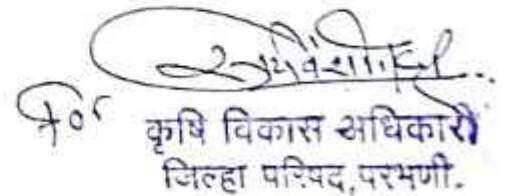 For
कृषि विकास अधिकारी
जिल्हा परिषद, परभणी.